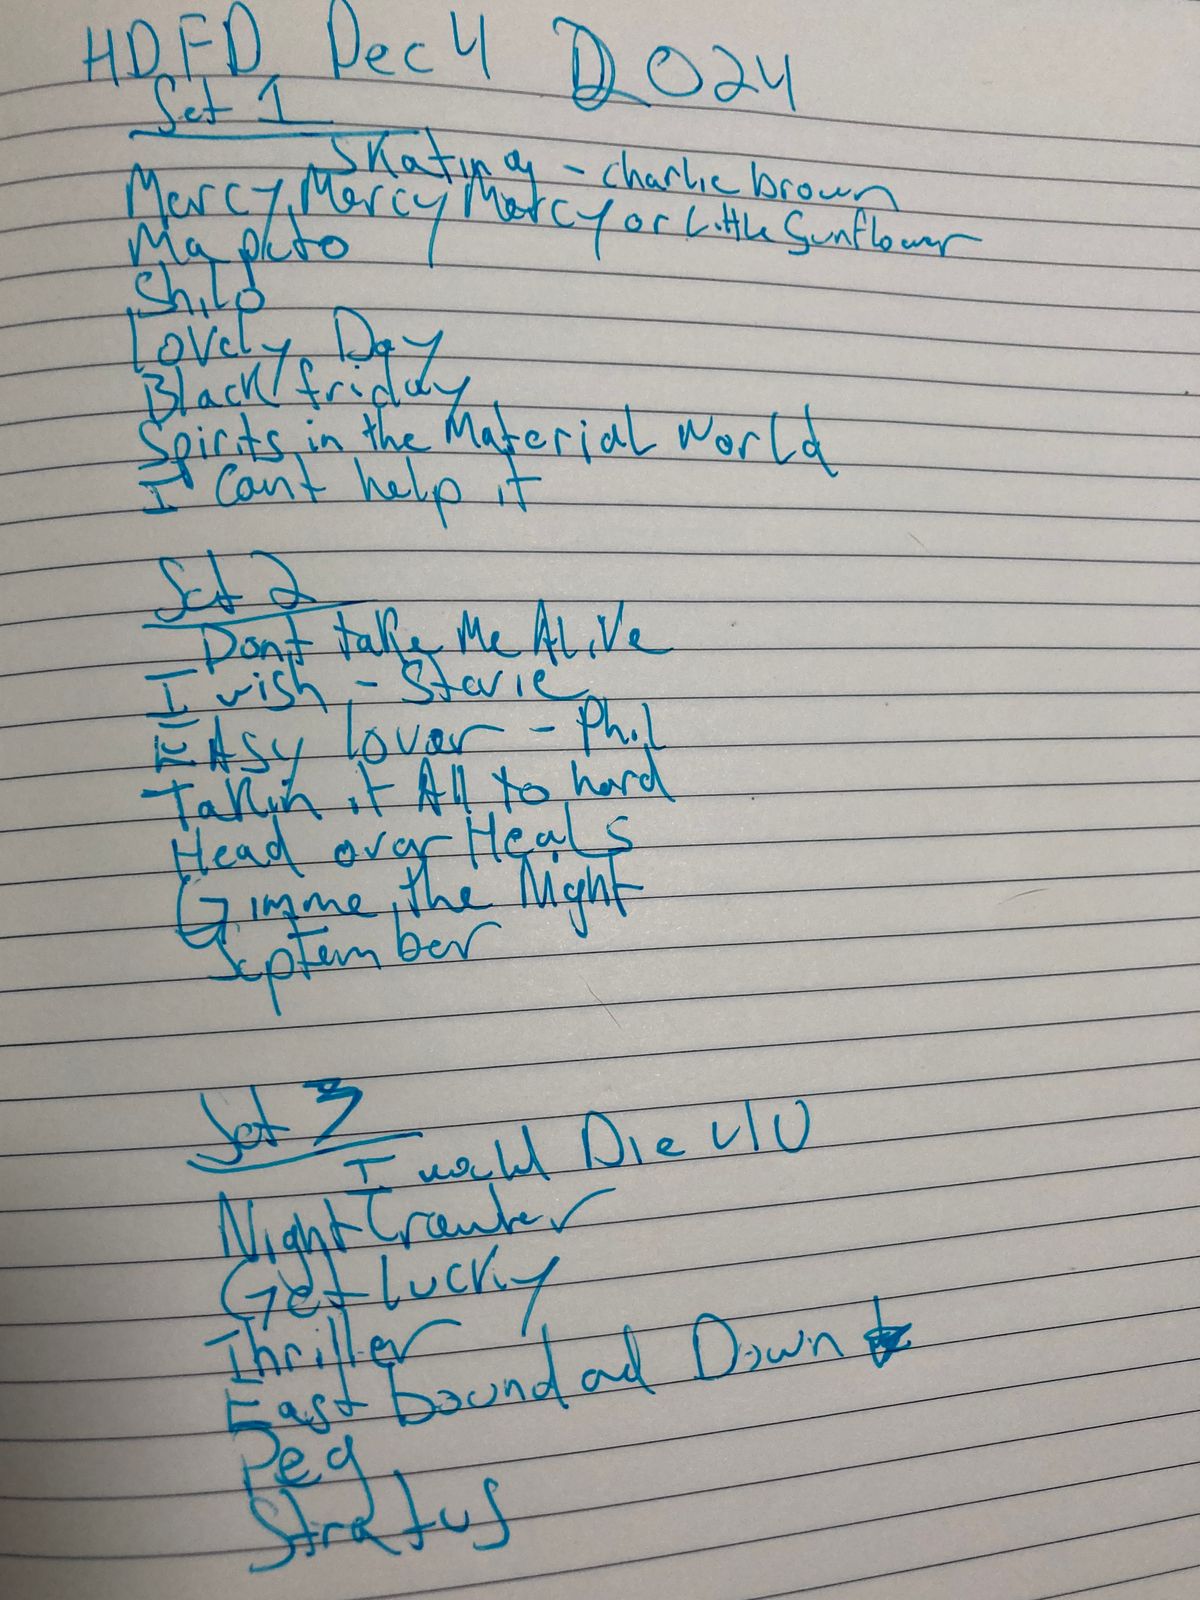 HDFD Dec 4 2024
Set 1
Skating - charlie brown
Mercy, Mercy Mercy or Little Sunflower
Maputo
Shilo
Lovely Day
Black friday
Spirits in the Material World
I Cant help it
Set 2
Dont take Me Alive
I wish - Stevie
EAsy lover - Phil
Takin it All to hard
Head over Heals
Gimme the Night
September
Set 3
I would Die 4 U
Night Crawler
Get lucky
Thriller
East bound ad Down
Peg
Stratus